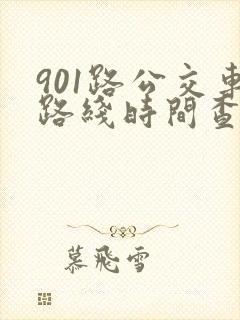 901路公交車
路綫時間查
慕飛雪